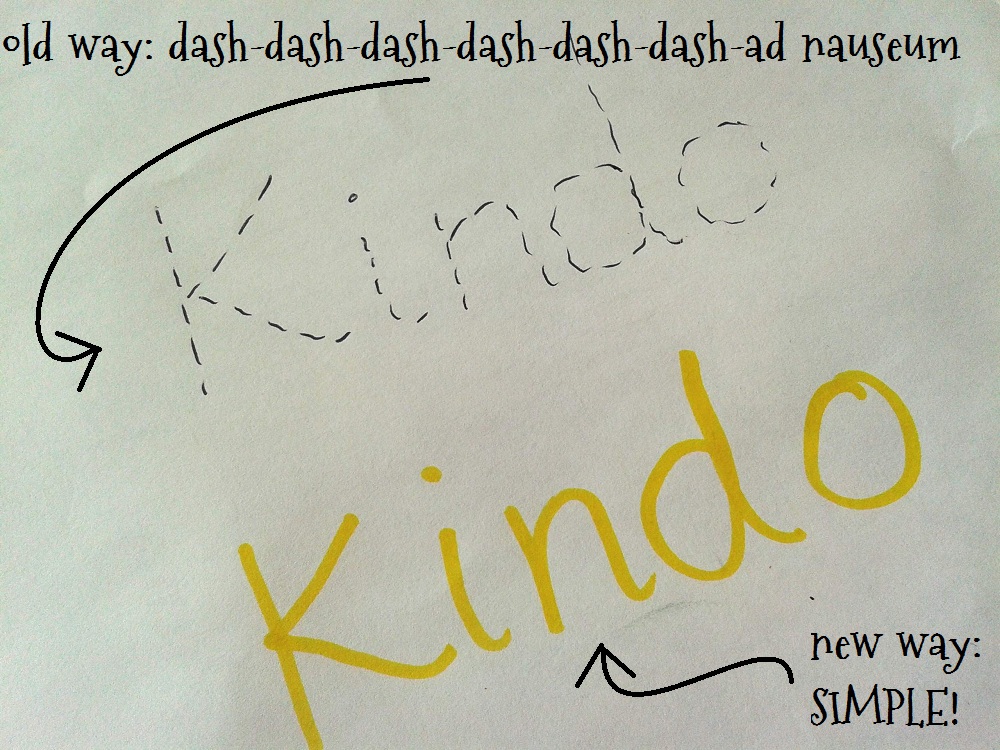 old way: dash-dash-dash-dash-dash-dash-ad nauseum
Kindo
Kindo
new way:
SIMPLE!